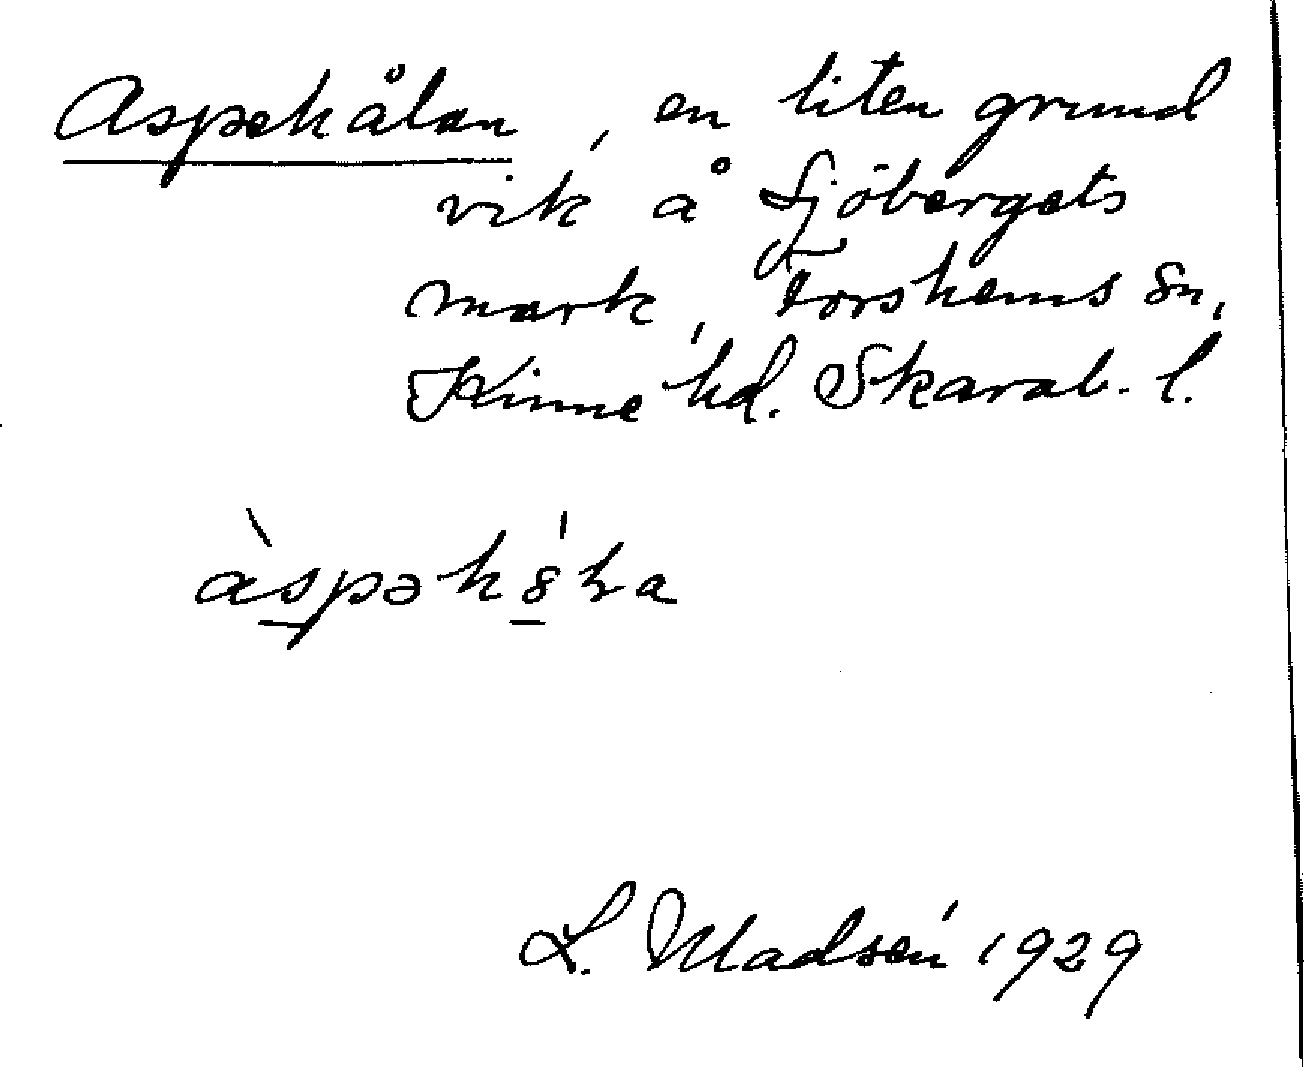 Aspekålan, en liten grund
vik å Sjöbergets
mark, Forshems sn,
Kinne hd. Skarab. l.
àspək8́ɫa
L. Madsén 1929